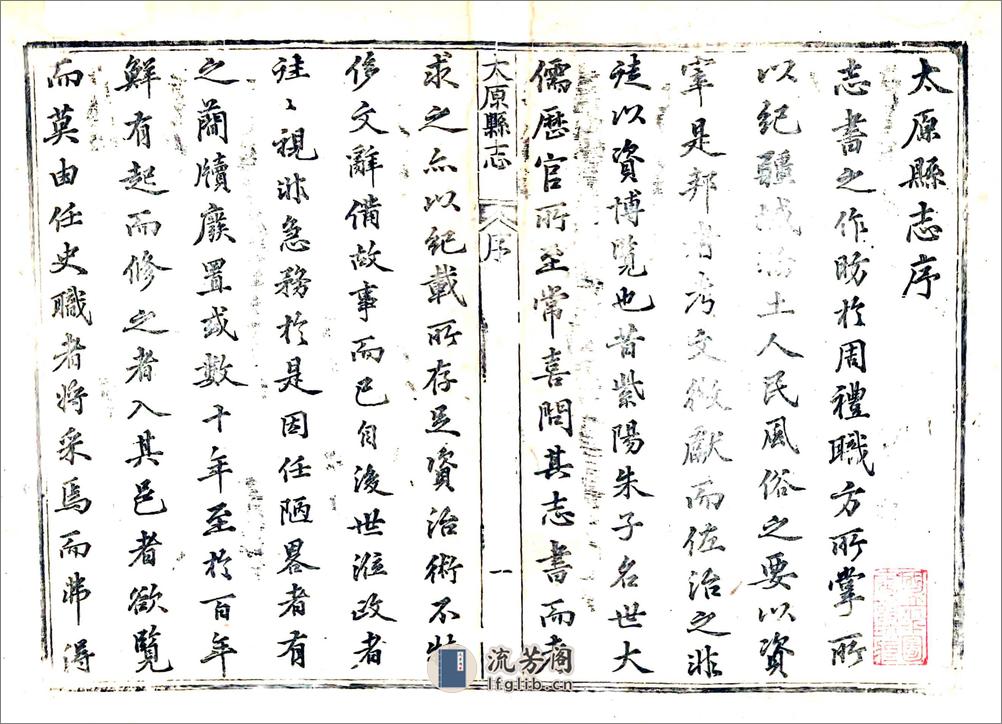 太原縣志序
志書之作昉於周禮職方所掌所
以紀疆域 土人民風俗之要以資
宰是邦者考文徵獻而佐治之非
徒以資博覽也昔紫陽朱子名世大
儒歷官所至常喜問其志書而
太原縣志 序 一
求之亦以紀載所存足資治術不
修文辭備故事而已自後世涖政者
往〻視非急務於是因任陋畧者有
之蕳牘廢置或數十年至於百年
鮮有起而修之者入其邑者欲覽
而莫由任史職者將采焉而弗得
流芳閣
lfglib.cn